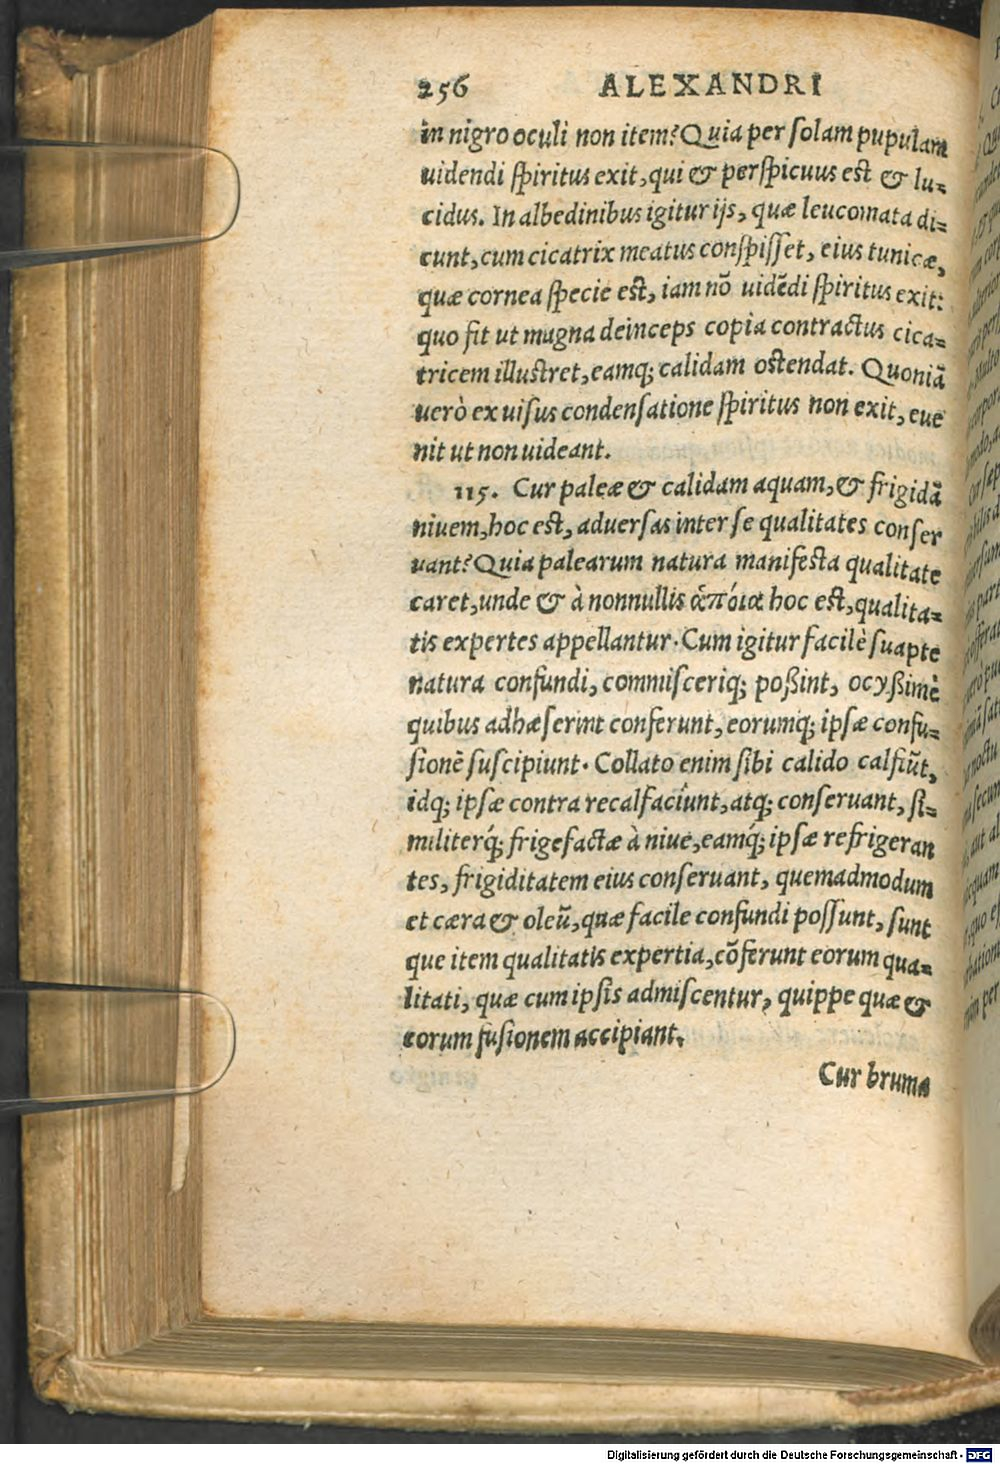 256 ALEXANDRI
in nigro oculi non item? Quia per ſolam pupulam
uidendi ſpiritus exit, qui & perſpicuus est & lu-
cidus. In albedinibus igitur ijs, quæ leucomata di-
cunt, cum cicatrix meatus conſpiſſet, eius tunicæ,
quæ cornea ſpecie est, iam nō uidēdi ſpiritus exit:
quo fit ut magna deinceps copia contractus cica-
tricem illuſtret, eamq; calidam oſtendat. Quoniā
uerò ex uiſus condenſatione ſpiritus non exit, eue
nit ut non uideant.
115. Cur paleæ & calidam aquam, & frigidā
niuem, hoc eſt, aduerſas inter ſe qualitates conſer
uant? Quia palearum natura manifeſta qualitate
caret, unde & à nonnullis ἄποια hoc eſt, qualita-
tis expertes appellantur. Cum igitur facilè ſuapte
natura confundi, commiſceriq; poßint, ocyßimè
quibus adhæſerint conferunt, eorumq; ipſæ confu-
ſionē ſuſcipiunt. Collato enim ſibi calido calfiūt,
idq; ipſæ contra recalfaciunt, atq; conſeruant, ſi-
militerq́; frigefactæ à niue, eamq́; ipſæ refrigeran
tes, frigiditatem eius conſeruant, quemadmodum
et cæra & oleū, quæ facile confundi poſſunt, ſunt
que item qualitatis expertia, cōferunt eorum qua-
litati, quæ cum ipſis admiſcentur, quippe quæ &
eorum fuſionem accipiant.
Cur bruma
Digitalisierung gefördert durch die Deutsche Forschungsgemeinschaft - DFG